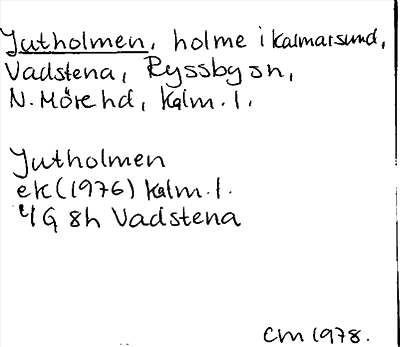 Jutholmen, holme i Kalmarsund,
Vadstena, Ryssby sn,
N. Möre hd, Kalm. l.
Jutholmen
ek (1976) Kalm. l.
4G 8h Vadstena
CM 1978.